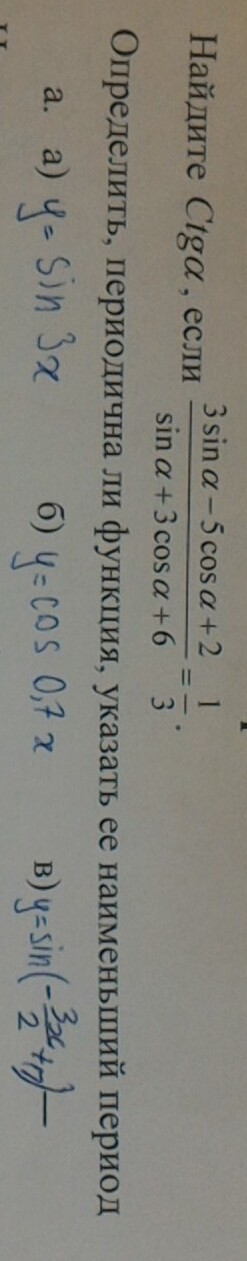 Найдите Ctgα, если (3 sin α − 5 cos α + 2)/(sin α + 3 cos α + 6) = 1/3.
Определить, периодична ли функция, указать ее наименьший период
а. а) y = sin 3x б) y = cos 0,7x в) y = sin(-3x/2 +